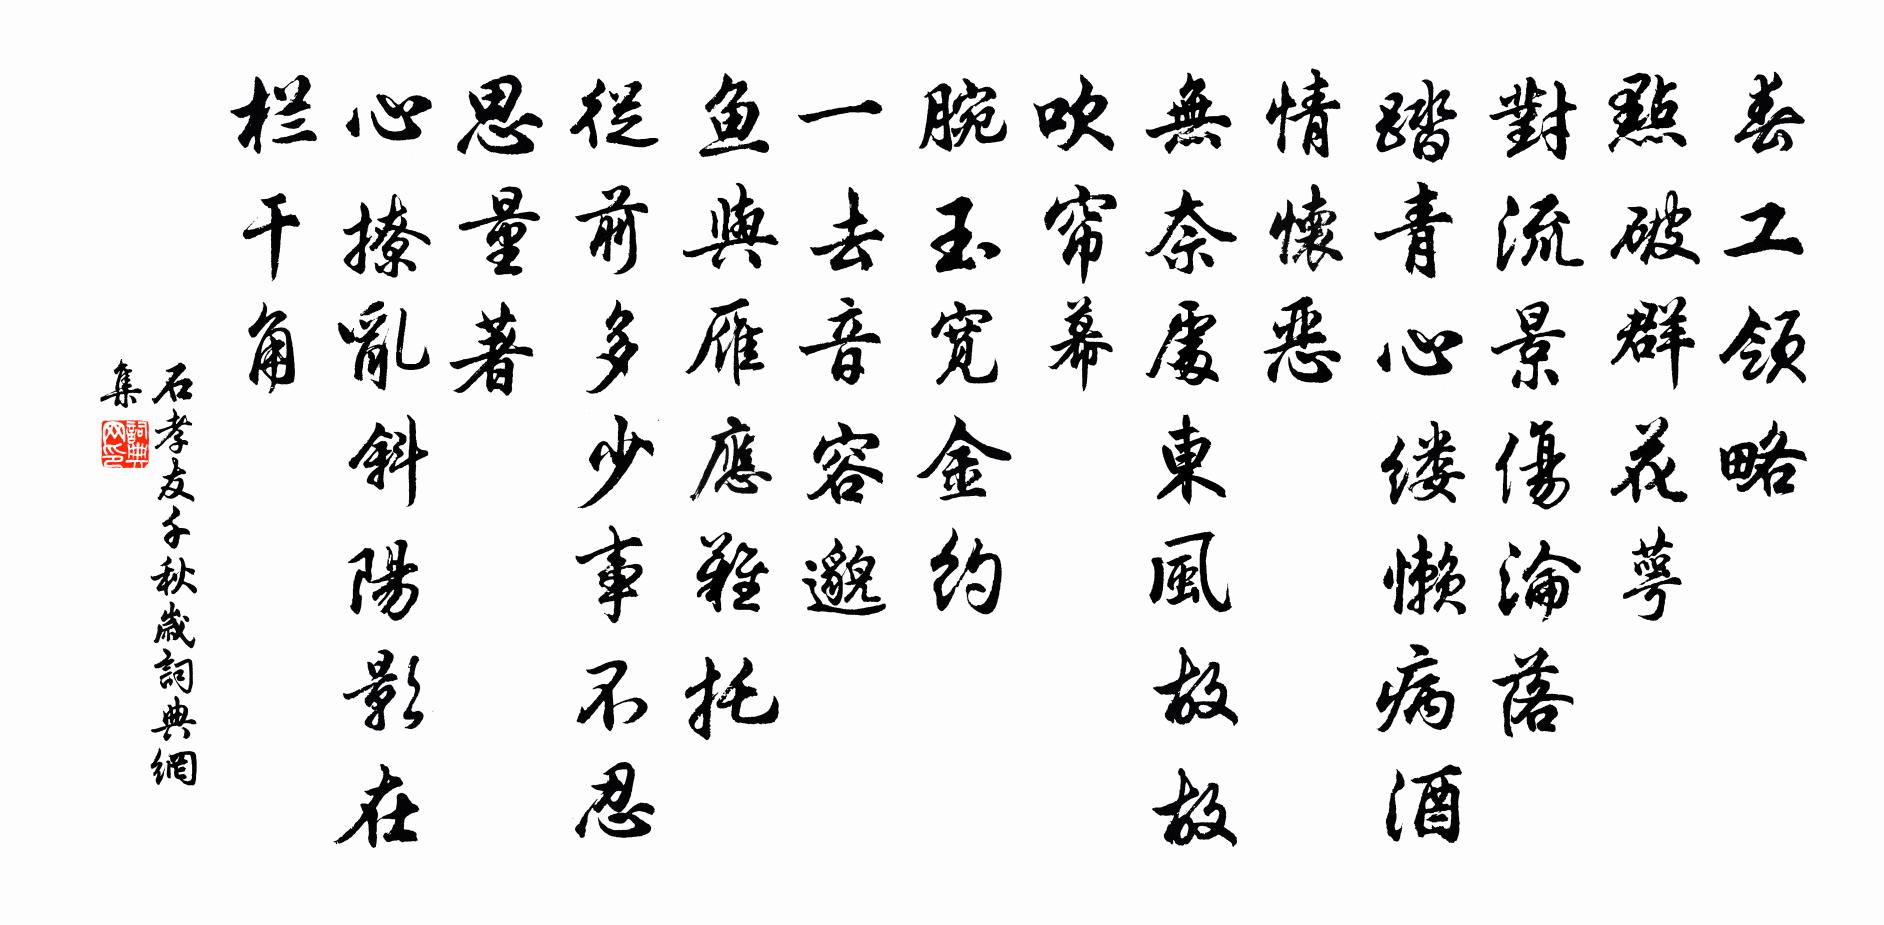 春工領略
點破群花萼
對流景傷淪落
踏青心缕懶病酒
情懷惡
無奈處東風故故
吹帘幕
腕玉宽金约
一去音容邈
鱼與雁應難托
從前多少事不忍
思量著
心撩亂斜陽影在
栏干角
石孝友千秋歲詞典網
集
詞典網印